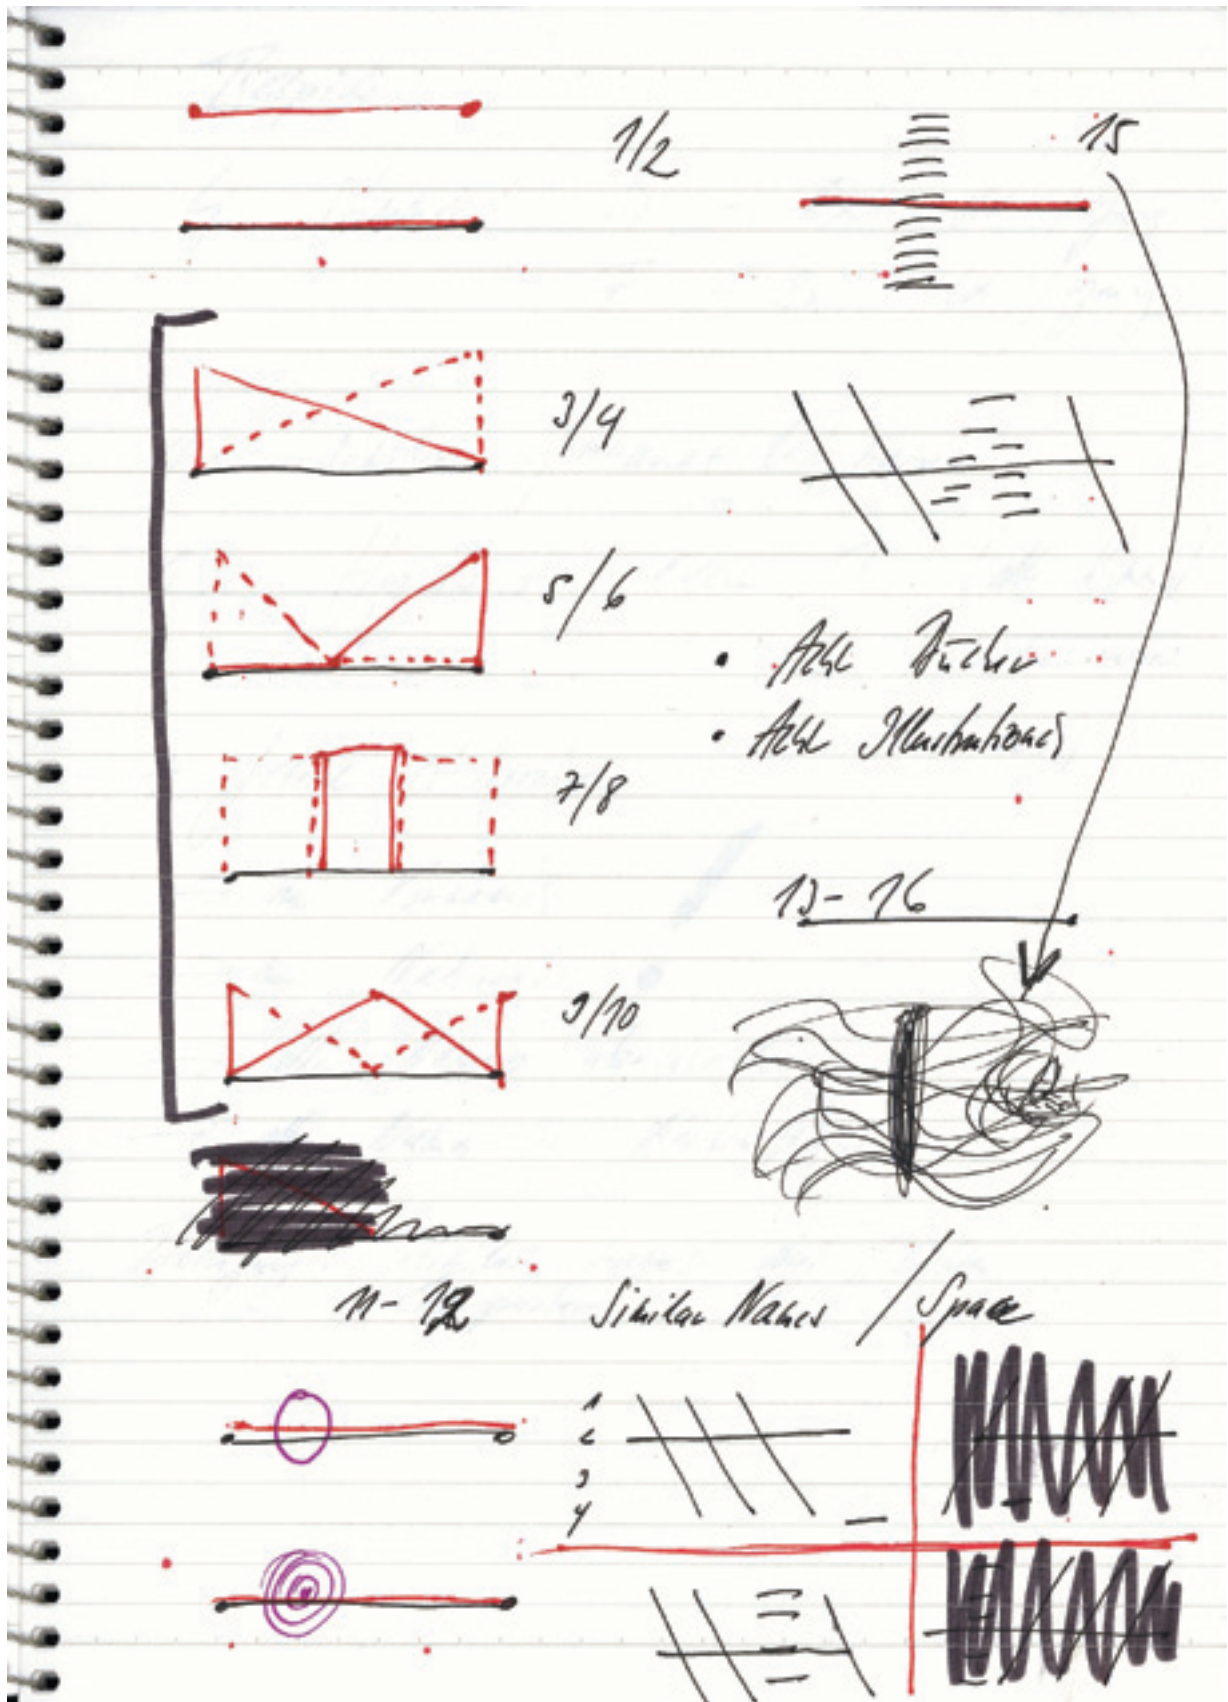 1/2
15
3/4
5/6
• Acht Bücher
• Acht Illustrationen
7/8
13-16
9/10
11-12
Similar Names / Space
1
2
3
4